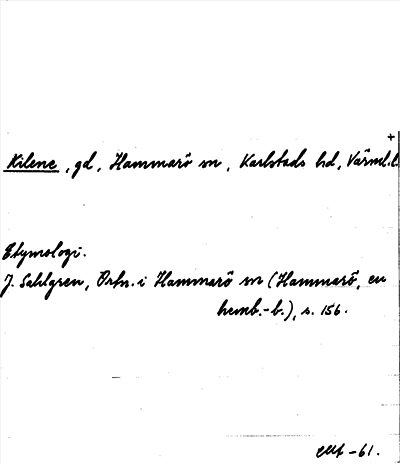 +
Kilene, gd, Hammarö sn, Karlstads hd, Värml.l.
Etymologi.
J. Sahlgren, Ortn. i Hammarö sn (Hammarö, en
hemb.-b.), s. 156.
-61.